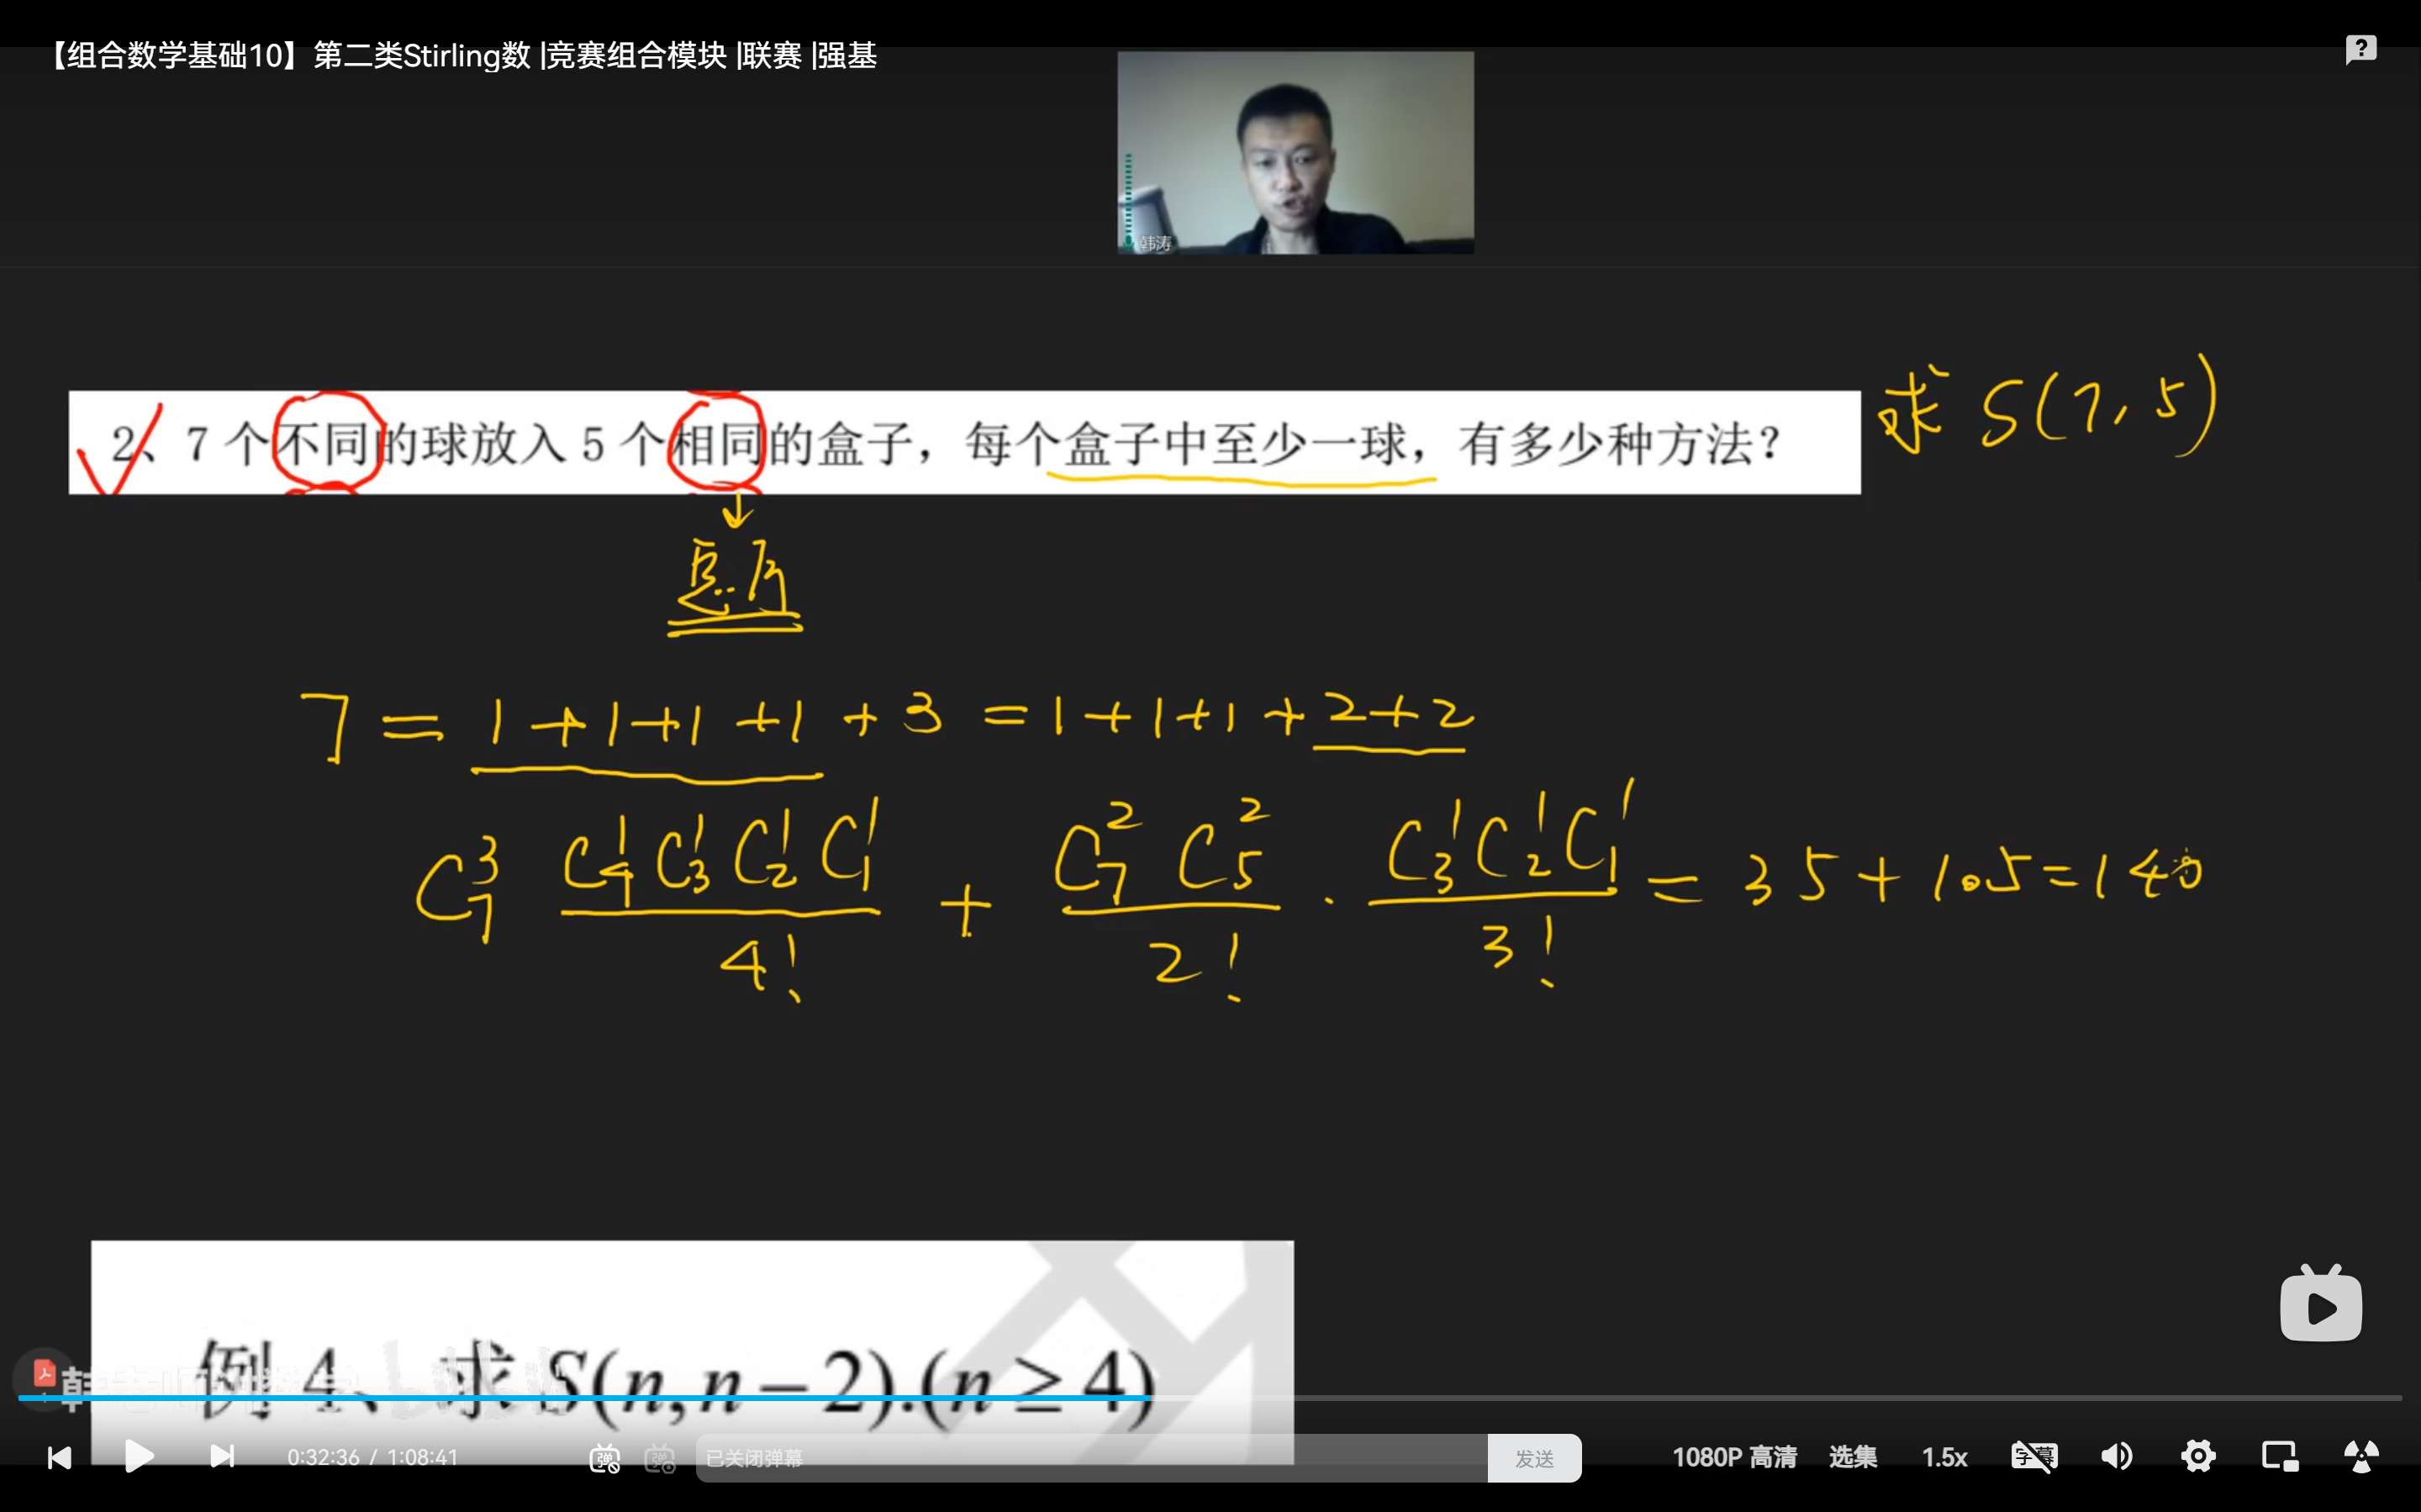 【组合数学基础10】第二类Stirling数 |竞赛组合模块 |联赛 |强基
韩涛
2、7 个不同的球放入 5 个相同的盒子，每个盒子中至少一球，有多少种方法？
求 S(7,5)
无序
7 = 1+1+1+1+3 = 1+1+1+2+2
C₇³ (C₄¹C₃¹C₂¹C₁¹)/4! + (C₇²C₅²)/2! · (C₃¹C₂¹C₁¹)/3! = 35+105=140
例 4、求 S(n,n−2).(n≥4)
0:32:36 / 1:08:41
弹
已关闭弹幕
发送
1080P 高清
选集
1.5x
字幕